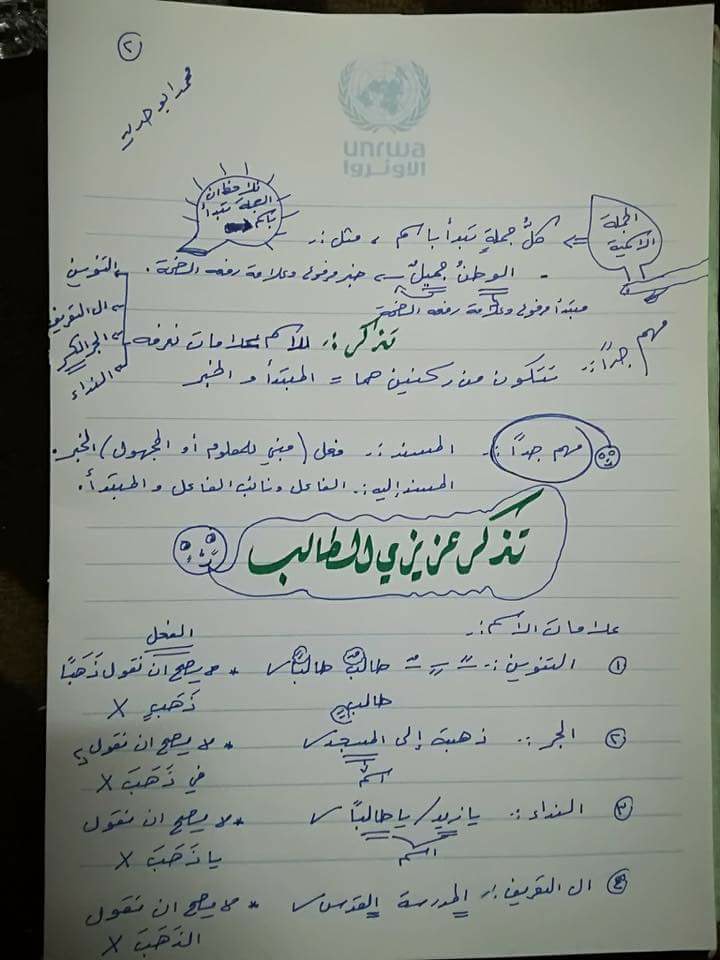 ٢
محمد ابو حديد
unrwa
الأونروا
نلاحظ ان
الجملة تبدأ
باسم
الجملة
الاسمية
كلُّ جملةٍ تبدأ باسم ، مثل :.
- الوطنُ جميلٌ ← خبر مرفوع وعلامة رفعه الضمة .
مبتدأ مرفوع وعلامة رفعه الضمة
تذكر :. للاسم علامات نعرفه
التنوين
ال التعريف
الجر
النداء
مهم جداً :. تتكون من ركنين هما = المبتدأ و الخبر
مهم جداً :. المسند :. فعل (مبني للمعلوم أو المجهول) الخبر.
المسند إليه :. الفاعل ونائب الفاعل و المبتدأ.
تذكر عزيزي الطالب
علامات الاسم :.
الفعل
١ التنوين :. ـً ـٍ ـٌ طالبٌ طالباً ✓ * لا يصح ان نقول ذَهَبًا
طالبٍ
ذَهَبٍ X
٢ الجر :. ذهبة إلى المسجد ✓ * لا يصح ان نقول
اسم
في ذَهَبَ X
٣ النداء :. يا زيد / يا طالباً ✓ * لا يصح ان نقول
اسم
يا ذَهَبَ X
٤ ال التعريف :. المدرسة القدس ✓ * لا يصح ان نقول
الذَهَبَ X